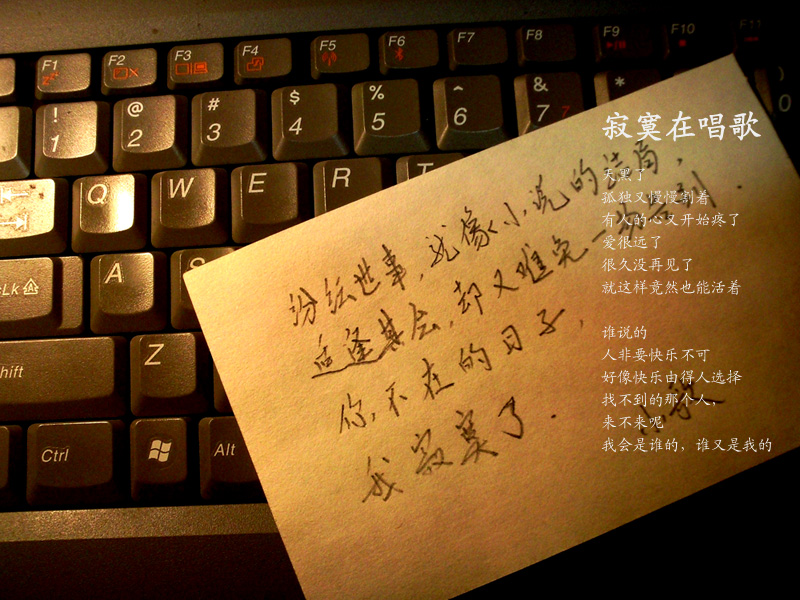 F1 F2 F3 F4 F5 F6 F7 F8 F9 F10 F11
! @ # $ % ^ & * )
1 2 3 4 5 6 7 7 0
Q W E R T
A S
Z
Shift
Ctrl Alt
纷纭世事，就像小说的结局，
适逢其会，却又难免一次告别．
你不在的日子，
我寂寞了．
寂寞在唱歌
天黑了
孤独又慢慢割着
有人的心又开始疼了
爱很远了
很久没再见了
就这样竟然也能活着
谁说的
人非要快乐不可
好像快乐由得人选择
找不到的那个人，
来不来呢
我会是谁的，谁又是我的